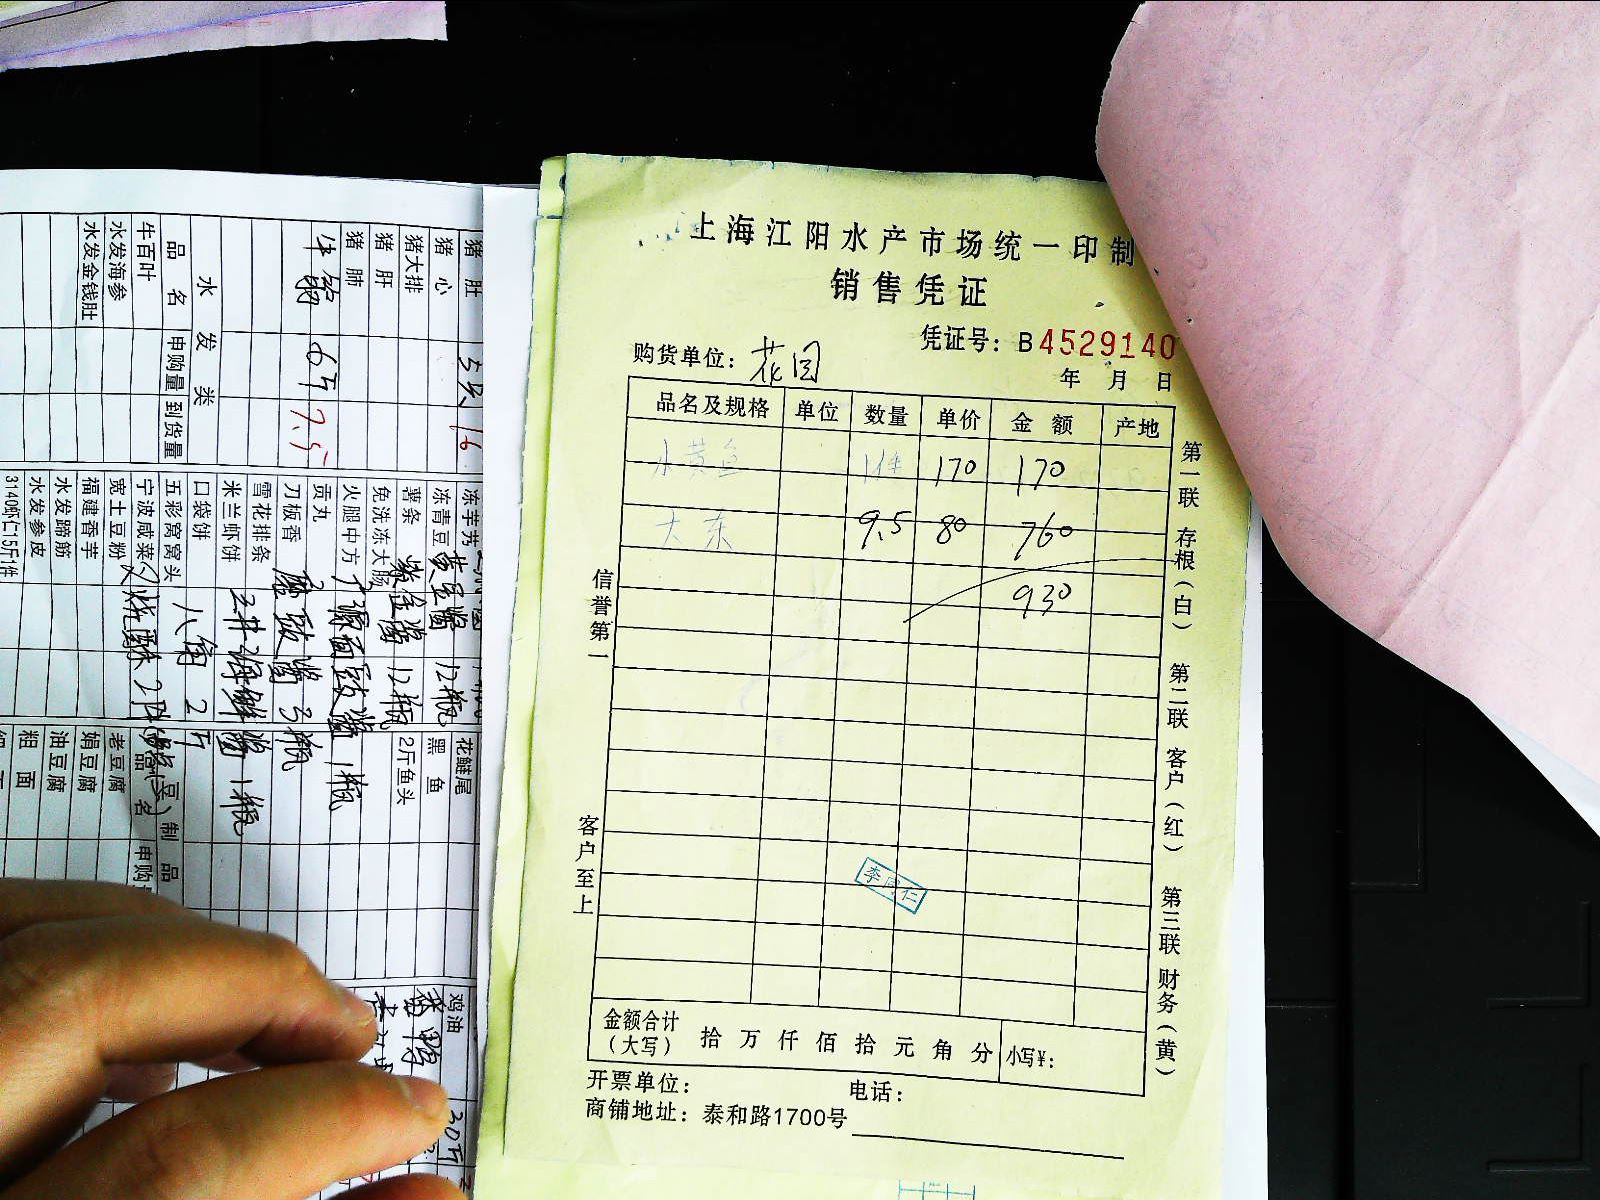 上海江阳水产市场统一印制
销售凭证
凭证号：B4529140
购货单位：花园
年 月 日
品名及规格 单位 数量 单价 金额 产地
小黄鱼 1件 170 170
大东 9.5 80 760
930
信誉第一
客户至上
第一联 存根（白） 第二联 客户（红） 第三联 财务（黄）
李同仁
金额合计（大写） 拾 万 仟 佰 拾 元 角 分 小写¥：
开票单位： 电话：
商铺地址：泰和路1700号
猪肚 16
猪心
猪大排
猪肝
猪肺
牛腩 6斤 7.5
水发类
品名 申购量 到货量
牛百叶
水发海参
水发金钱肚
冻芋艿
冻青豆 黄豆酱 12瓶
薯条
免洗冻大肠
火腿中方
贡丸
刀板香
雪花排条
米兰虾饼
口袋饼 八角 2斤
五彩窝窝头
宁波咸菜
宽土豆粉
福建香芋
水发蹄筋
水发参皮
3140虾仁15斤1件
花鲢尾
黑鱼
2斤鱼头
老豆腐
娟豆腐
油豆腐
粗面
鸡油
番鸭
30斤